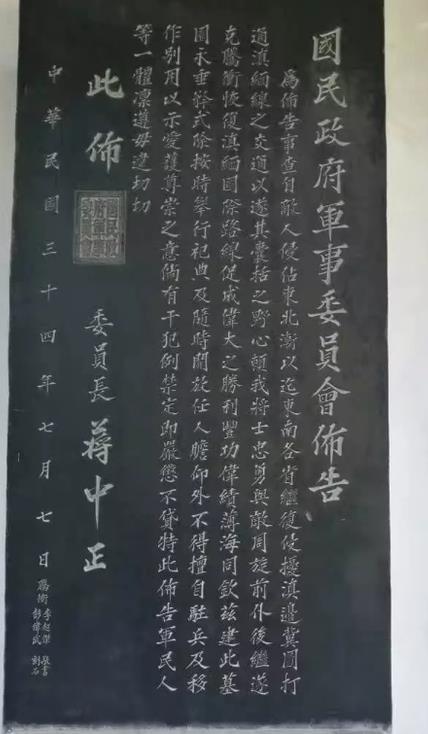 國民政府軍事委員會佈告
為佈告事查自敵人侵佔東北漸以迄東南各省繼復侵擾滇邊冀圖打
通滇緬線之交通以遂其囊括之野心賴我將士忠勇與敵周旋前仆後繼遂
克騰衝恢復滇緬國際路線促成偉大之勝利豐功偉績薄海同欽茲建此墓
園永垂矜式除按時舉行祀典及隨時開放任人瞻仰外不得擅自駐兵及移
作別用以示愛護尊崇之意倘有干犯例禁定即嚴懲不貸特此佈告軍民人
等一體凜遵毋違切切
此佈
委員長 蔣中正
中華民國三十四年七月七日
騰衝
李起傑 敬書
刻石